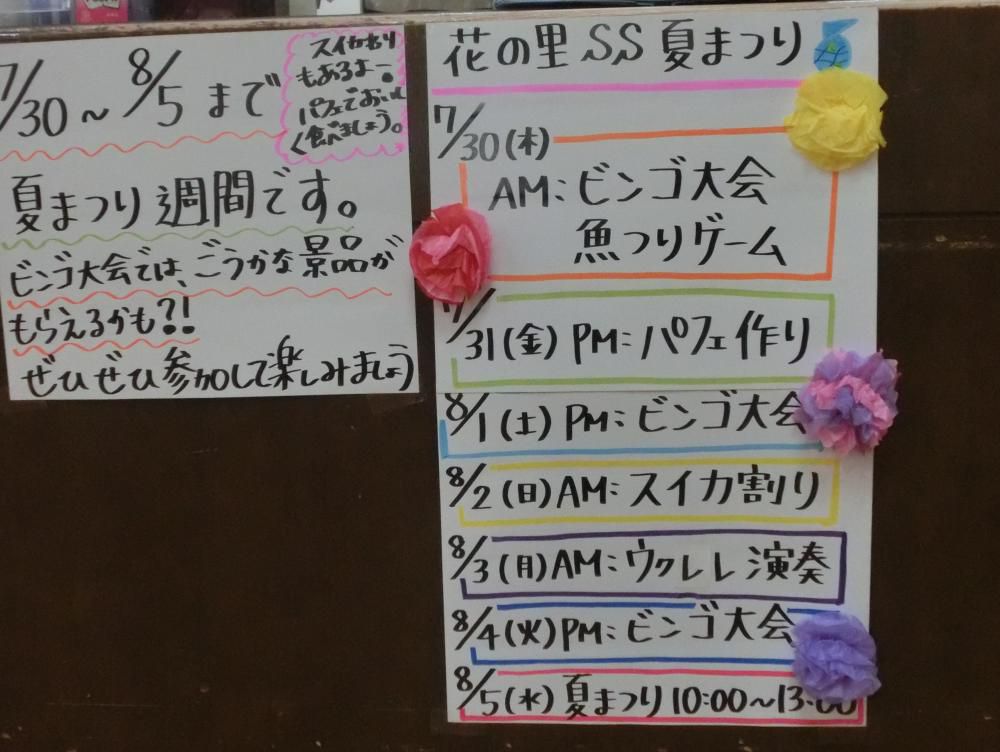 7/30〜8/5まで
スイカわり
もあるよー。
パフェでおいし
く食べましょう。
夏まつり週間です。
ビンゴ大会では、ごうかな景品が
もらえるかも?!
ぜひぜひ参加して楽しみましょう
花の里SS夏まつり
7/30(木)
AM:ビンゴ大会
魚つりゲーム
7/31(金)PM:パフェ作り
8/1(土)PM:ビンゴ大会
8/2(日)AM:スイカ割り
8/3(月)AM:ウクレレ演奏
8/4(火)PM:ビンゴ大会
8/5(水)夏まつり10:00〜13:00